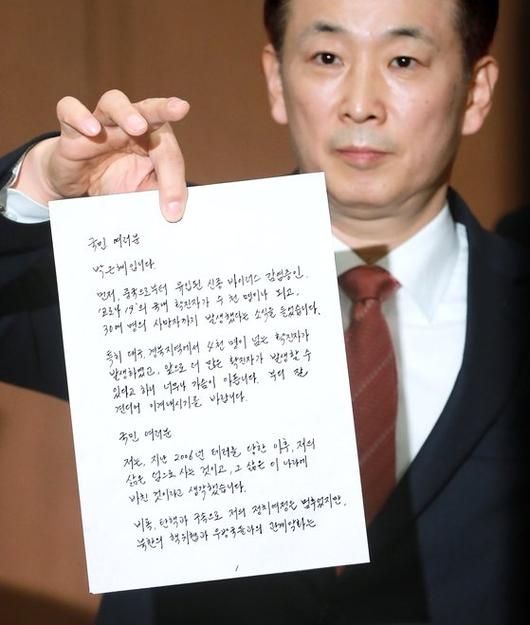 국민 여러분
박근혜입니다.
먼저, 중국으로부터 유입된 신종 바이러스 감염증인,
'코로나 19'의 국내 확진자가 수 천 명이나 되고,
30여 명의 사망자까지 발생했다는 소식을 들었습니다.
특히 대구·경북지역에서 4천 명이 넘는 확진자가
발생하였고, 앞으로 더 많은 확진자가 발생할 수
있다고 하니 너무나 가슴이 아픕니다. 부디 잘
견디어 이겨내시기를 바랍니다.
국민 여러분
저는, 지난 2006년 테러를 당한 이후, 저의
삶은 덤으로 사는 것이고, 그 삶은 이 나라에
바친 것이라고 생각했습니다.
비록, 탄핵과 구속으로 저의 정치여정은 멈추었지만,
북한의 핵위협과 우방국들과의 관계악화는
1